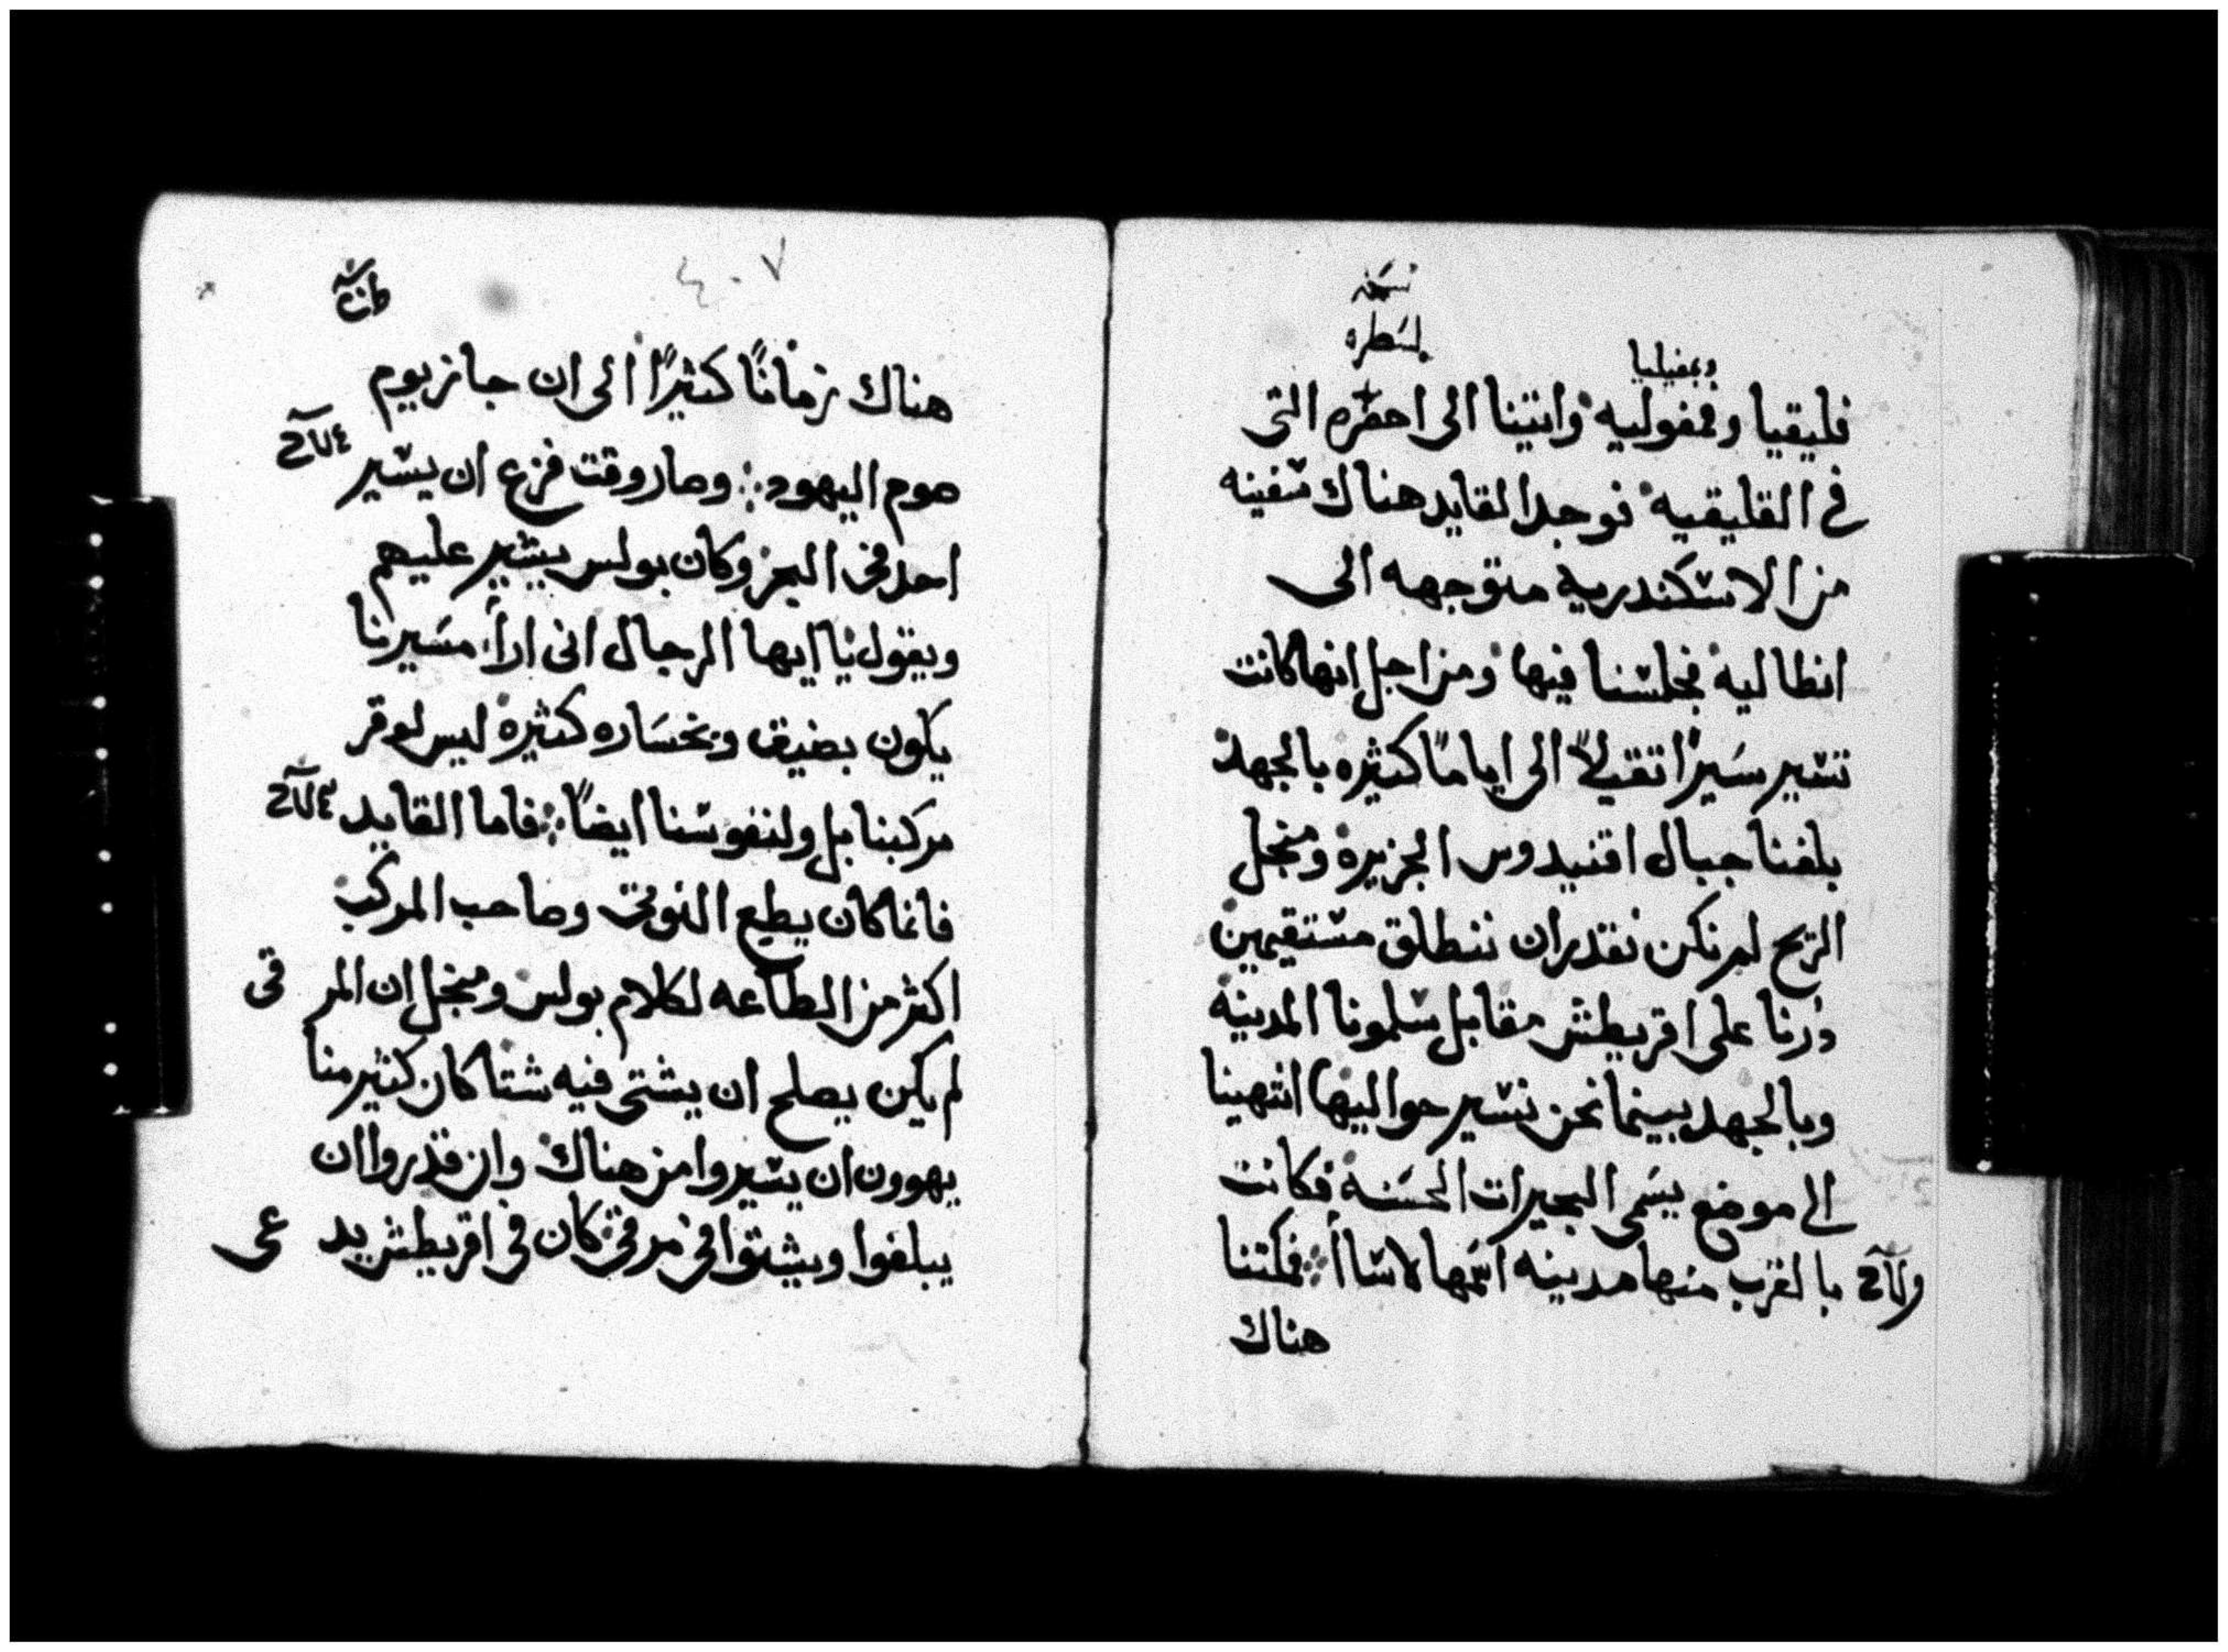 نسخه
لسطره
وبمفيليا
قليقيا وفمفوليه واتينا الى التى
في القليقيه فوجد القايد هناك سفينه
من الاسكندريه متوجهه الى
انطاليه فجلسنا فيها ومن اجل انها كانت
تسير سيرًا ثقيلاً الى ايامًا كثيره بالجهد
بلغنا جبال اقنيدوس الجزيره ومنجل
الريح لم نكن نقدر ان ننطلق مستقيمين
درنا على اقريطش مقابل سلمونا المدينه
وبالجهد بينما نحن نسير حواليها انتهينا
الى موضع يسمى البحيرات الحسنه فكانت
بالقرب منها مدينه اسمها لاسا فمكثنا
هناك
٤٠٧
هناك زمانًا كثيرًا الى ان جاز يوم
صوم اليهود وصار وقت فزع ان يسير
احد في البحر وكان بولس يشير عليهم
ويقول يا ايها الرجال انى ارا مسيرنا
يكون بضيق وبخساره كثيره ليس لوقر
مركبنا بل ولنفوسنا ايضًا فاما القايد
فانما كان يطيع النوتى وصاحب المركب
اكثر من الطاعه لكلام بولس ومنجل ان المر فى
لم يكن يصلح ان يشتى فيه شتا كان كثير منا
يهوون ان يسيروا من هناك وان قدروا ان
يبلغوا ويشتوا في مرفى كان في اقريطش يد عى